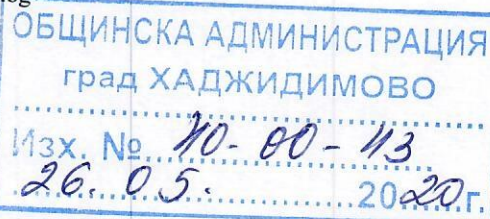 ОБЩИНСКА АДМИНИСТРАЦИЯ
град ХАДЖИДИМОВО
Изх. № 40-00-43
26. 05. 2020г.